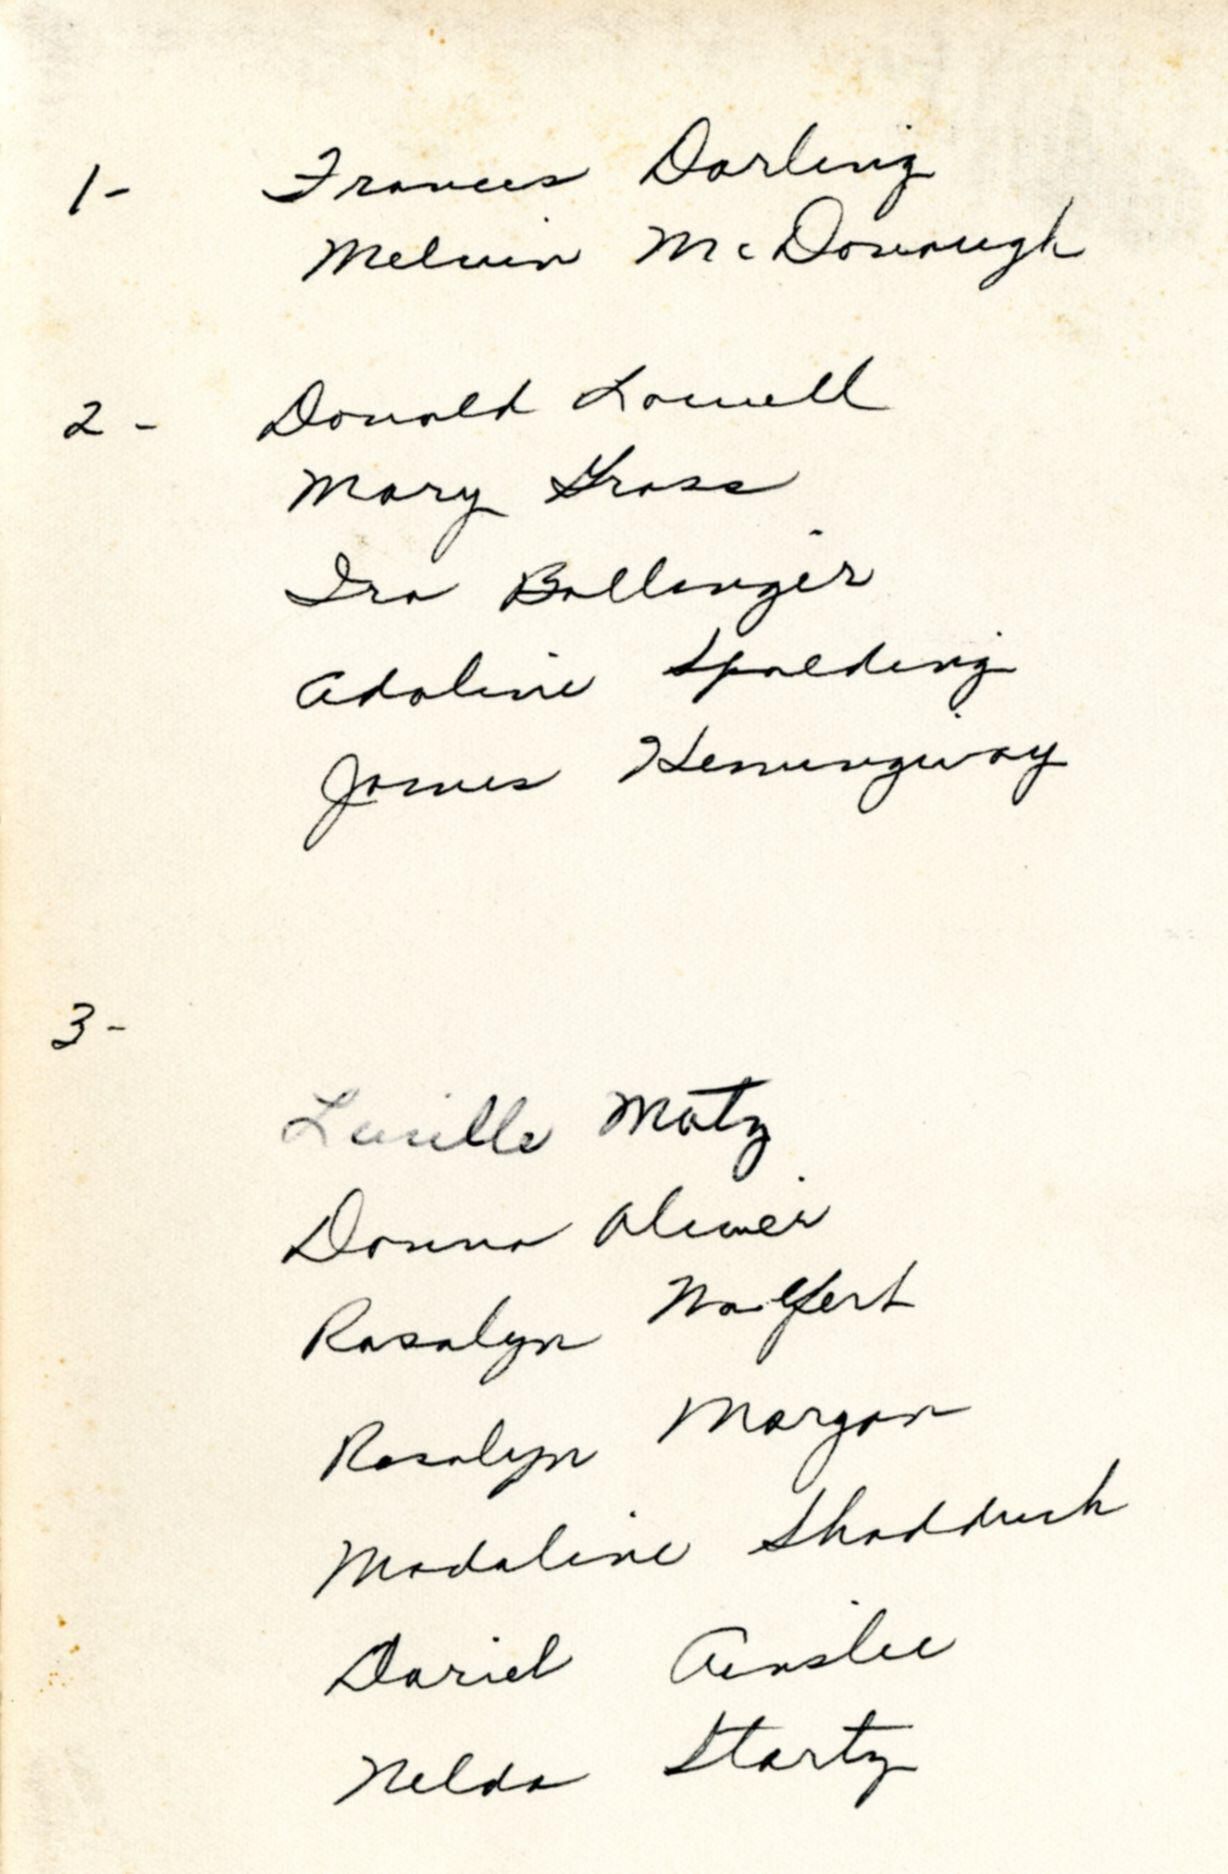 1- Frances Darling
Melvin McDonough
2- Donald Lowell
Mary Grass
Ira Bollinger
Adaline Spalding
James Hemingway
3-
Lucille Motz
Donna Oliver
Rosalyn Wolfert
Rosalyn Morgan
Madaline Shadduck
Dariel Ainslee
Nelda Startz